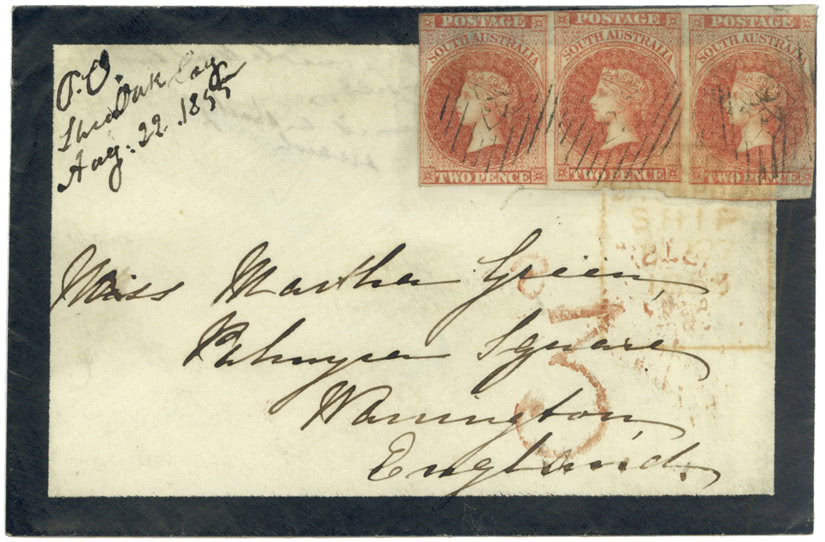 P.O.
Aug: 22. 1855
POSTAGE POSTAGE POSTAGE
SOUTH AUSTRALIA SOUTH AUSTRALIA SOUTH AUSTRALIA
TWO PENCE TWO PENCE TWO PENCE
SHIP
Miss Martha Green,
Palmyra Square
Warrington
England.
3